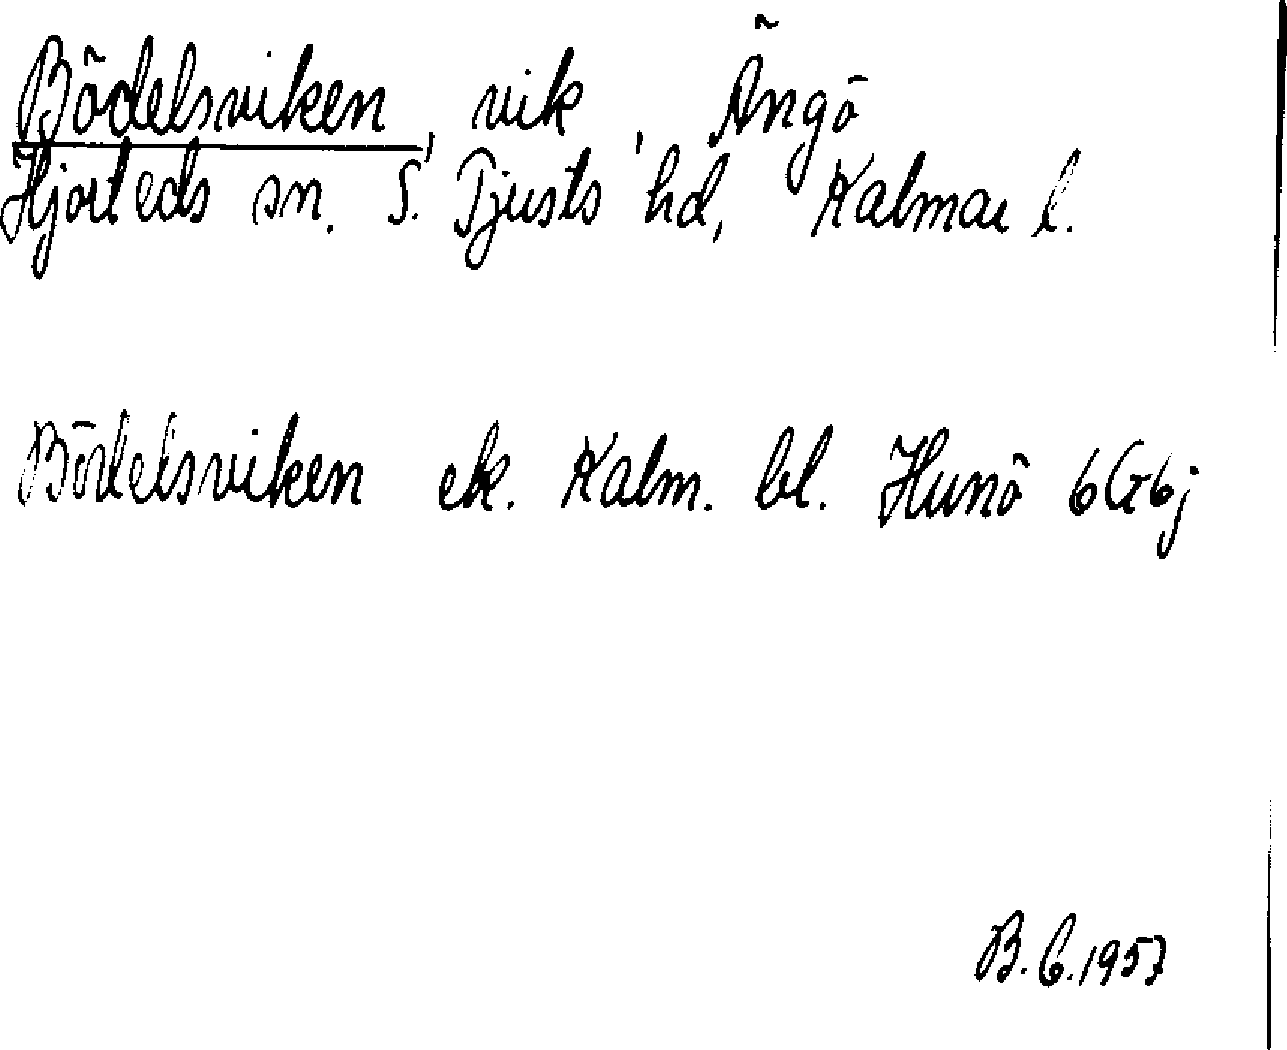 Bödelsviken, vik, Ängö
Hjorteds sn. S. Tjusts hd, Kalmar l.
Bödelsviken ek. Kalm. bl. Hunö 6G6j
B. C. 1957